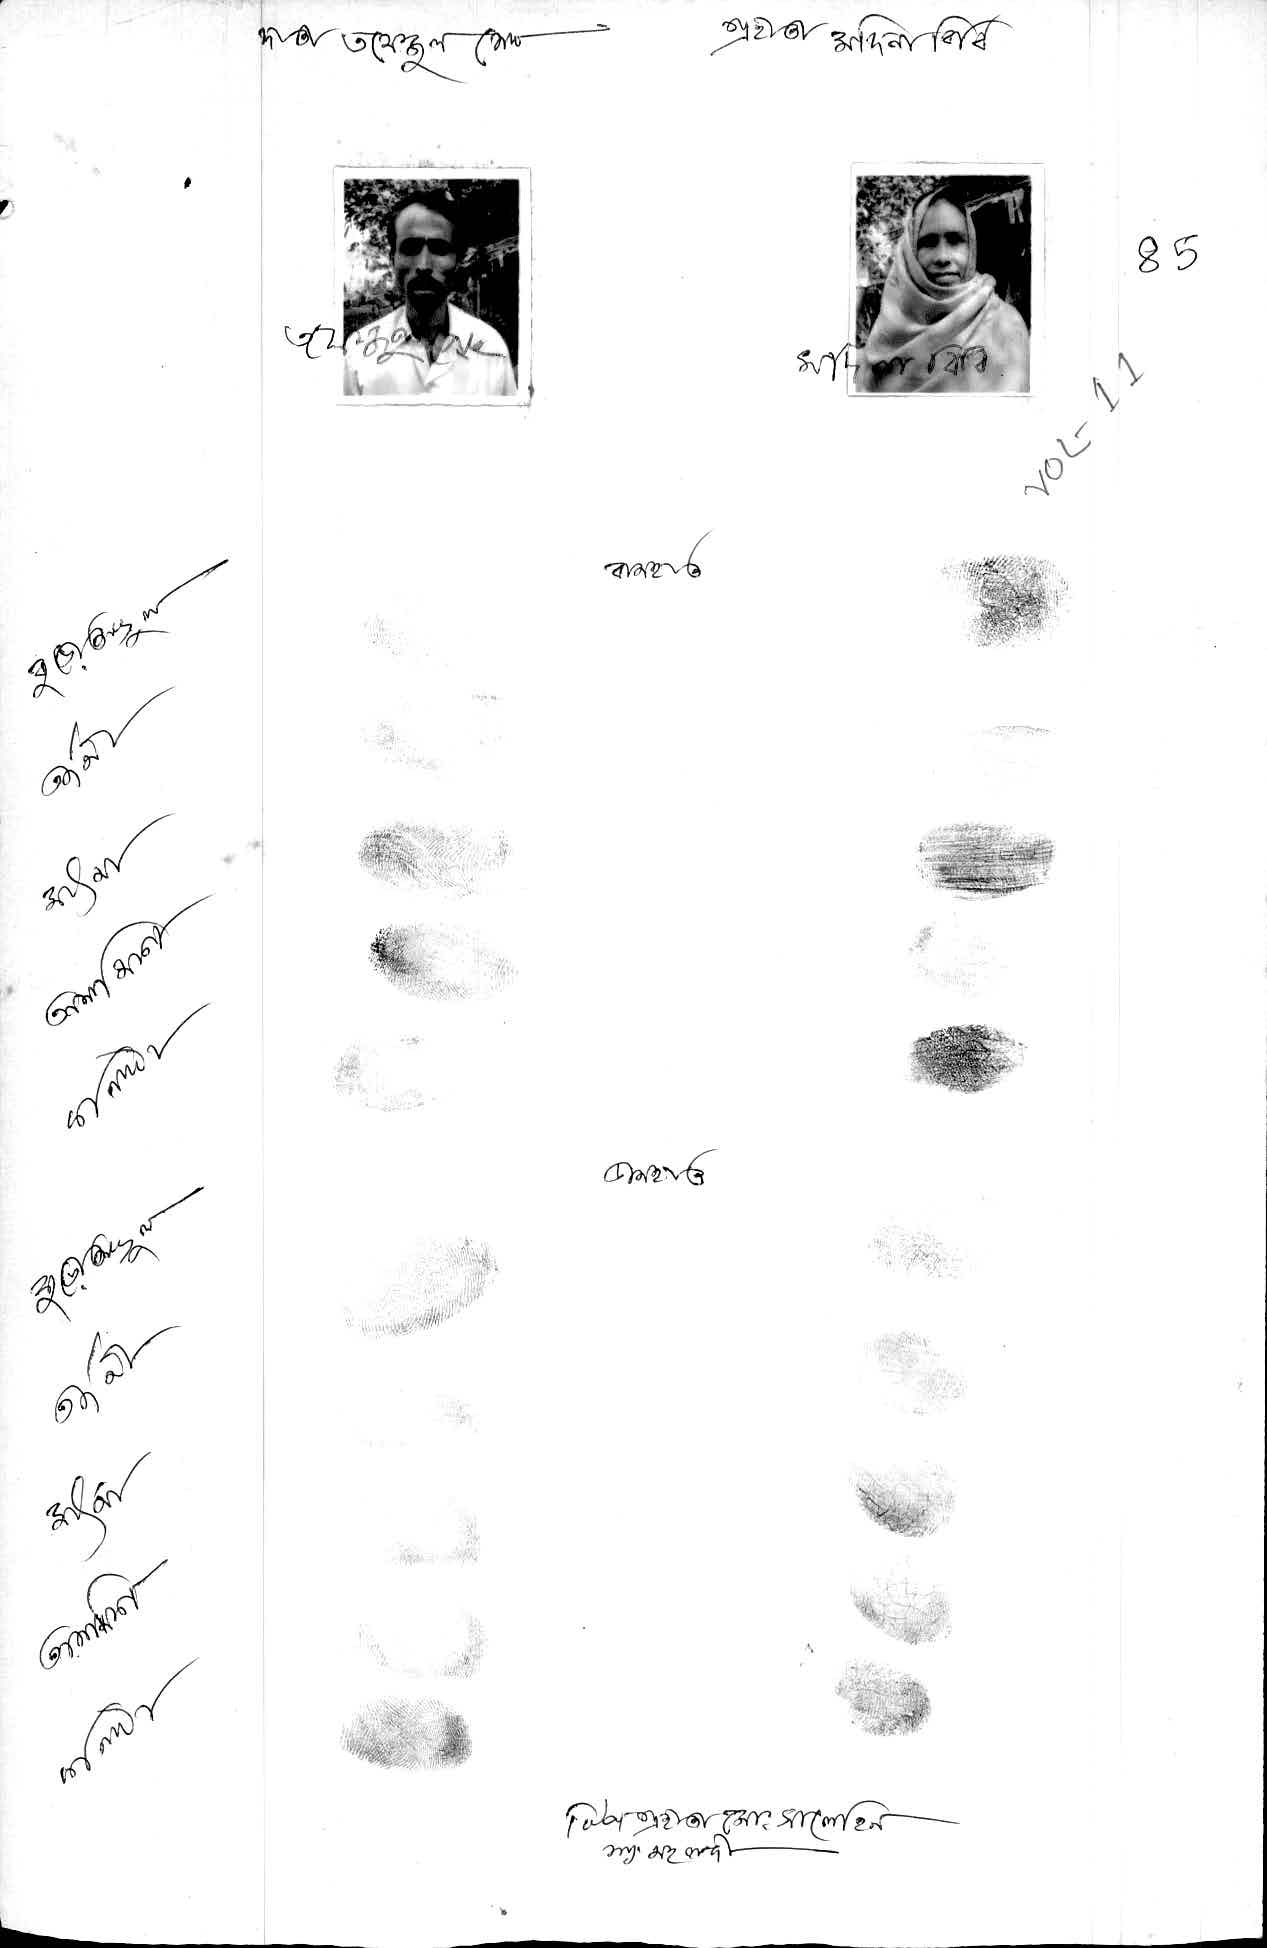 দাতা তফেজুল সেখ
গ্রহীতা মদিনা বিবি
85
তফেজুল সেখ
মদিনা বিবি
VOL- 11
বামহাত
বৃদ্ধাঙ্গুল
তর্জনী
মধ্যমা
অনামিকা
কনিষ্ঠা
ডানহাত
বৃদ্ধাঙ্গুল
তর্জনী
মধ্যমা
অনামিকা
কনিষ্ঠা
টিপ গ্রহীতা মোঃ সালেহিন